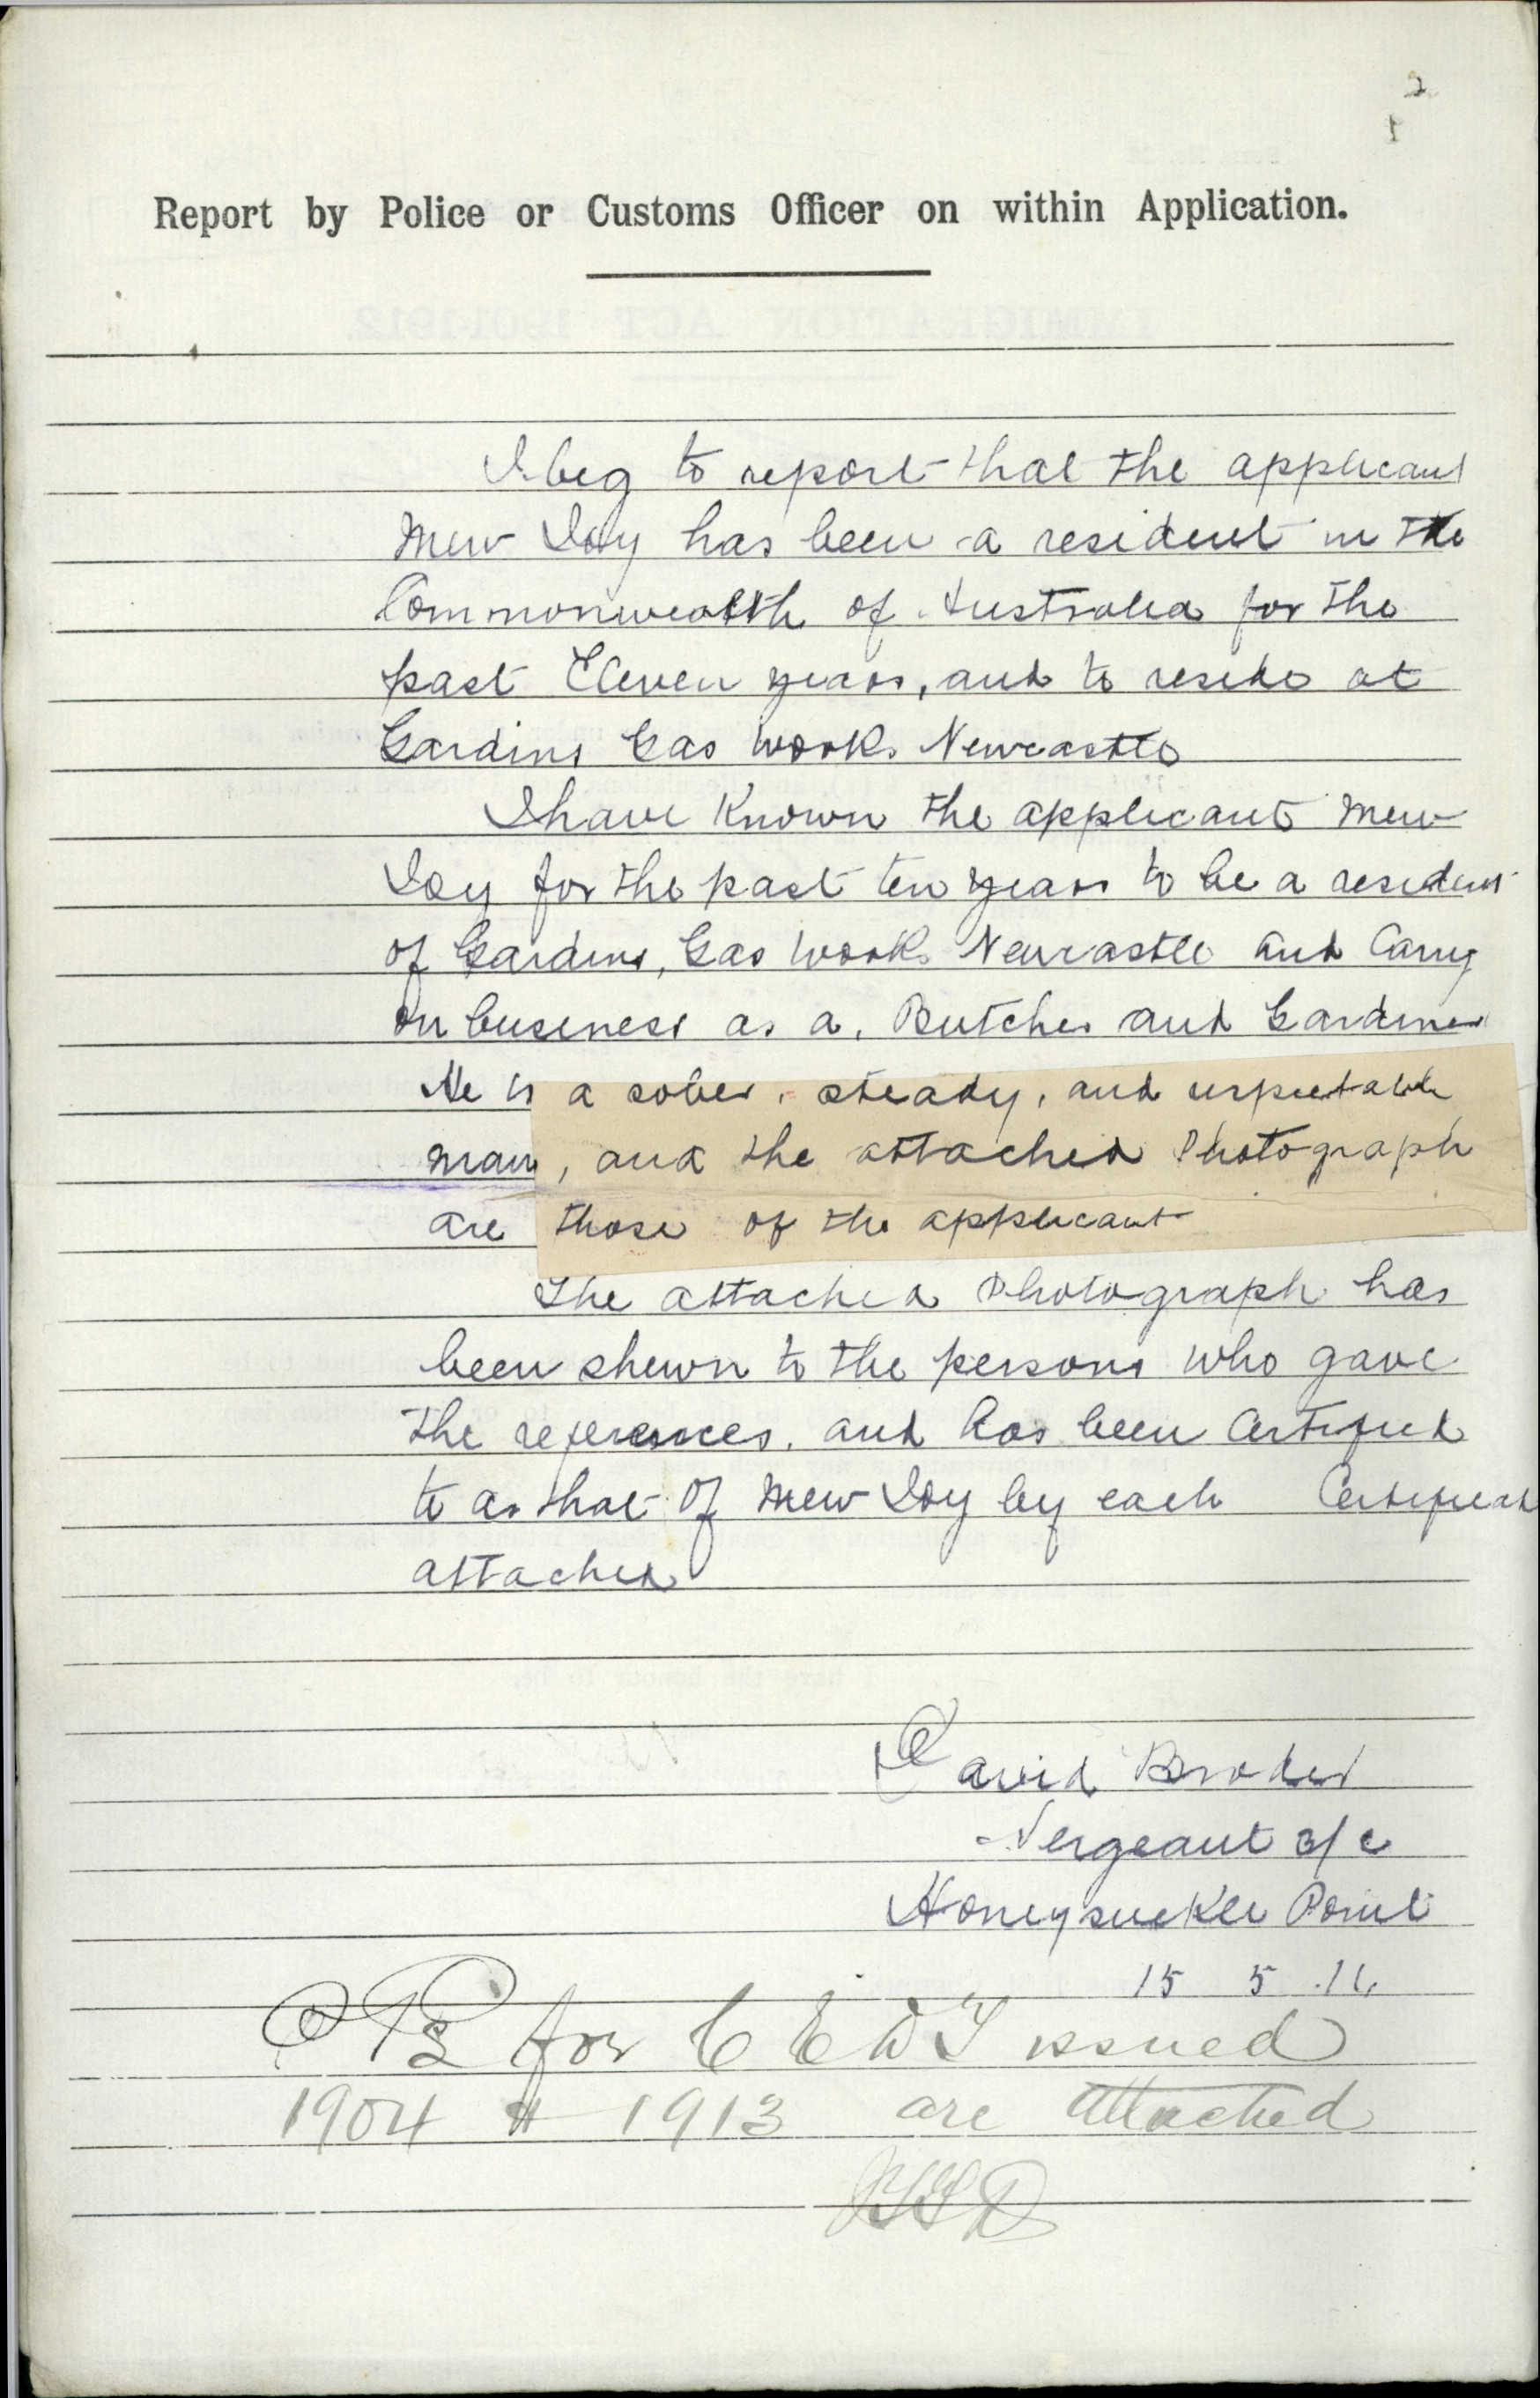 2
Report by Police or Customs Officer on within Application.
I beg to report that the applicant
Mew Joy has been a resident in the
Commonwealth of Australia for the
past Eleven years, and to reside at
Gardins Gas Works Newcastle
I have Known the applicant Mew
Joy for the past ten years to be a resident
of Gardins, Gas Works Newcastle and Carry
on business as a, Butcher and Gardiner
He is a sober, steady, and respectable
man, and the attached Photograph
are those of the applicant
The attached Photograph has
been shewn to the persons who gave
the references, and has been Certified
to as that of Mew Joy by each Certificate
attached
David Broder
Sergeant o/c
Honeysuckle Point
15 5 .16
for C E D T issued
1904 & 1913 are attached